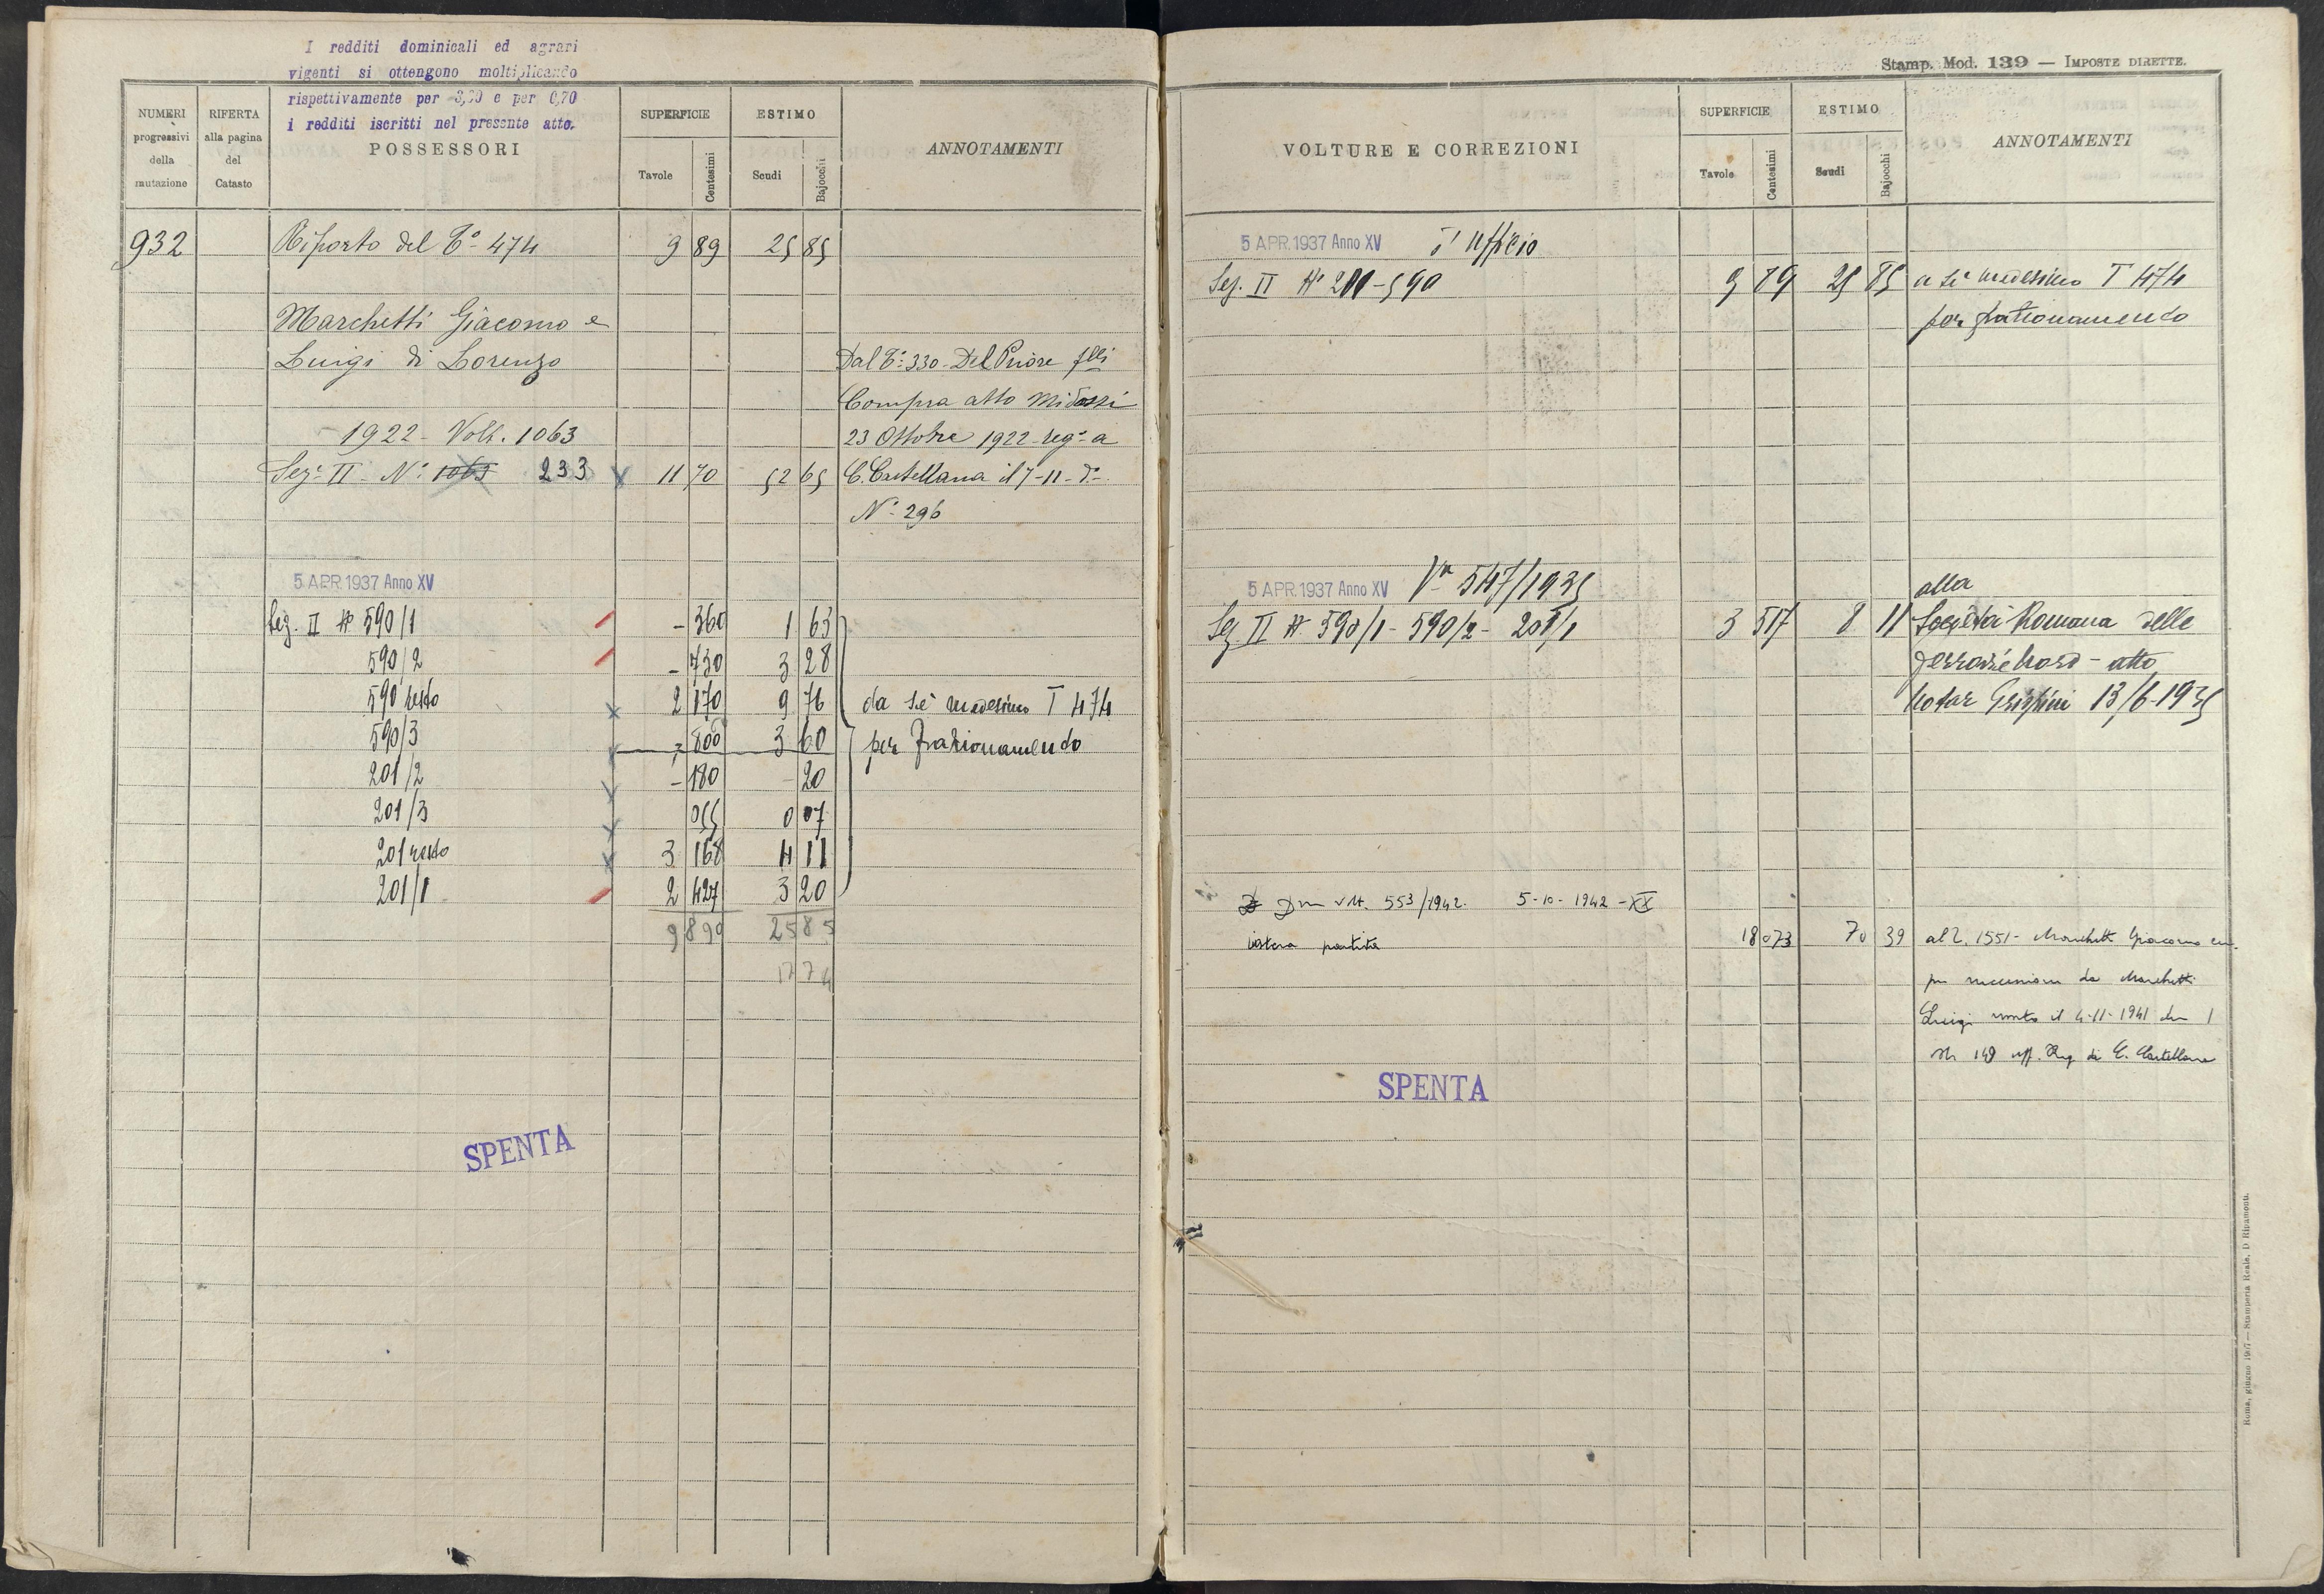 I redditi dominicali ed agrari
vigenti si ottengono moltiplicando
rispettivamente per 3,20 e per 0,70
i redditi iscritti nel presente atto.
NUMERI progressivi della mutazione
RIFERTA alla pagina del Catasto
POSSESSORI
SUPERFICIE
Tavole Centesimi
ESTIMO
Scudi Bajocchi
ANNOTAMENTI
932 Riporto del T.o 474 9 89 25 85
Marchetti Giacomo e
Luigi di Lorenzo
Dal T.o 330 - Del Priore f.lli
Compra atto Midossi
1922 - Volt. 1063
23 Ottobre 1922 reg.o a
Sez. II - N.o 1063 233 11 70 52 65
C. Castellana il 7-11- d.o
N.o 296
5 APR. 1937 Anno XV
Sez. II N 590/1 - 360 1 63
590/2 - 730 3 28
590 resto 2 170 9 76
590/3 - 800 3 60
201/2 - 180 - 20
201/3 055 0 07
201 resto 3 168 4 11
201/1 2 427 3 20
da se medesimo T 474
per frazionamento
9 890 25 85
17 74
SPENTA
Stamp. Mod. 139 — IMPOSTE DIRETTE.
VOLTURE E CORREZIONI
SUPERFICIE
Tavole Centesimi
ESTIMO
Scudi Bajocchi
ANNOTAMENTI
5 APR. 1937 Anno XV d'Ufficio
Sez. II N 201-590 9 89 25 85 a se medesimo T 474
per frazionamento
5 APR. 1937 Anno XV V.a 547/1935
alla
Sez II N 590/1 - 590/2 - 201/1 3 517 8 11 Società Romana delle
Ferrovie Nord - atto
Notar 13/6-1935
D Dom volt. 553/1942. 5-10-1942-XX
intera partita 18 073 70 39 al T. 1551 - Marchetti Giacomo
per successione da Marchetti
Luigi morto il 4-11-1941 den 1
N. 149 uff. Reg di C. Castellana
SPENTA
Roma, giugno 1907 — Stamperia Reale, D Ripamonti.